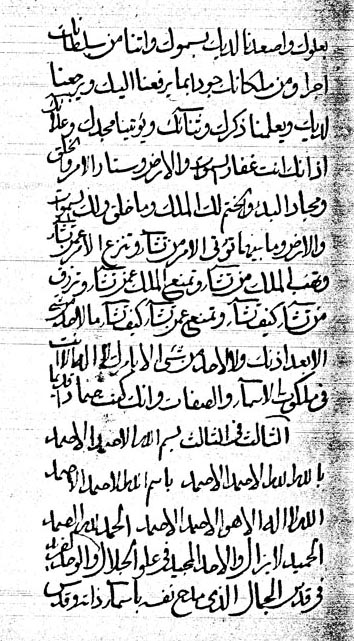 بعلوك واصعدنا لديك بسموك واتنا من سلطانك
اجرا ومن ملكانك جودا بما يرفعنا اليك ويرجعنا
لديك ويعلمنا ذكرك وثنائك ويؤتينا مجدك وعلائك
اذ انك انت غفار السموات والارض وستار الامر والخلق
ومجاد البدء والختم لك الملك وما خلق ولك السموات
والارض وما بينهما تؤتى الامر من تشاء وتنزع الامر عمن تشاء
وتهب الملك من تشاء وتمنع الملك عمن تشاء وترزق
من تشاء كيف تشاء وتمنع عمن تشاء كيف تشاء ما لاحد من
الا بعد اذنك ولا لاحد من شئ الا بارك لا اله الا انت
فى ملكوت الاسماء والصفات وانك كنت صمادا
الثالث فى الثالث بسم الله الاحمد الاحمد
بالله الله الاحمد الاحمد باسم الله الاحمد الاحمد
الله لا اله الا هو الاحمد الاحمد الحمد لله الصمد
الحميد لا يزال والاحد المجيد فى علو الجلال والواحد
فى قدس الجمال الذى مدح نفسه باسماء ذاته وقدس